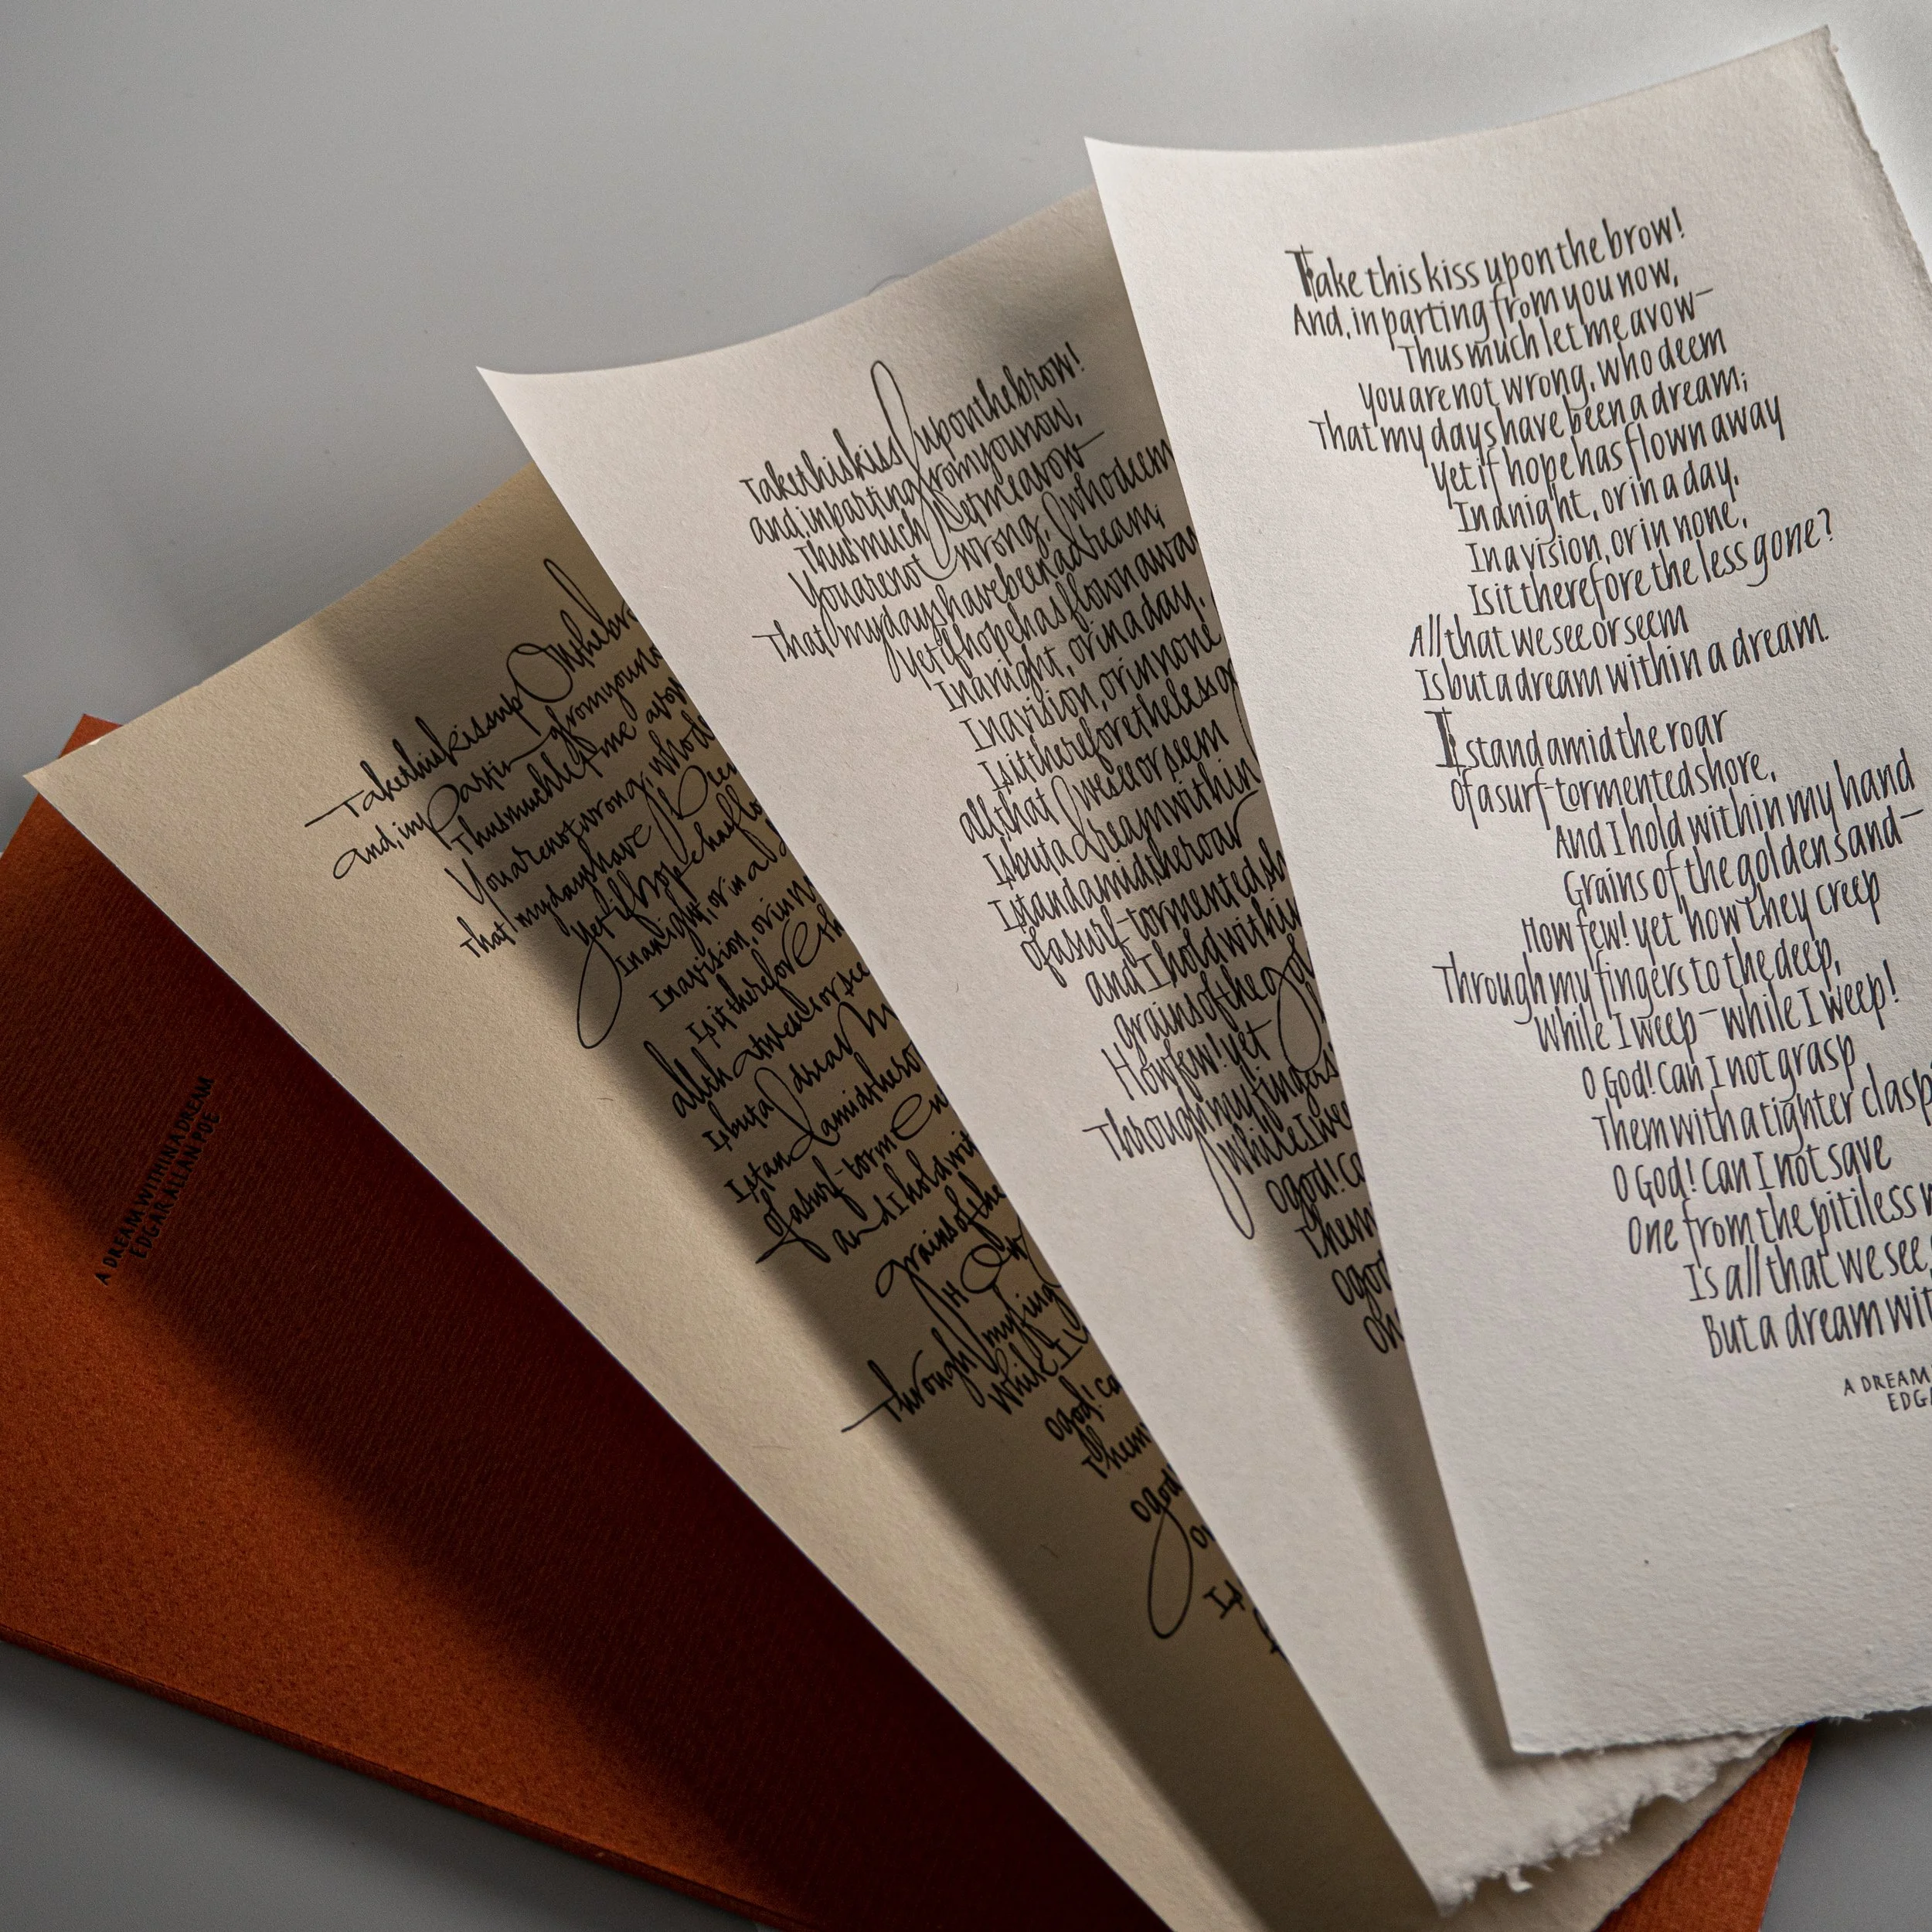 A DREAM WITHIN A DREAM
EDGAR ALLAN POE
Take this kiss up On the br
and, in Partin g from you no
Thus much let me avow
You are not wrong, who d
That my days have Been
Yet if hope has flo
In a night, or in a d
In a vision, or in n
Is it therefore th
all that we see or see
Is but a dream w
I stand amid the ro
of a surf-torme n
and I hold wit
grains of the
How
Through my fing
while I w
O god! ca
Them
O god!
On
Is
Take this kiss upon the brow!
and, in parting from you now,
Thus much let me avow—
You are not wrong, who deem
That my days have been a dream;
Yet if hope has flown away
In a night, or in a day,
In a vision, or in none
Is it therefore the less go
all that we see or seem
Is but a dream within
I stand amid the roar
of a surf-tormented sh
and I hold within
grains of the gol
How few! yet
Through my fingers
while I we
O god! Ca
Them
O god
On
Take this kiss upon the brow!
And, in parting from you now,
Thus much let me avow—
You are not wrong, who deem
That my days have been a dream;
Yet if hope has flown away
In a night, or in a day,
In a vision, or in none,
Is it therefore the less gone?
All that we see or seem
Is but a dream within a dream.
I stand amid the roar
Of a surf-tormented shore,
And I hold within my hand
Grains of the golden sand—
How few! yet how they creep
Through my fingers to the deep,
While I weep—while I weep!
O God! Can I not grasp
Them with a tighter clasp
O God! Can I not save
One from the pitiless w
Is all that we see
But a dream wit
A DREAM
EDGA